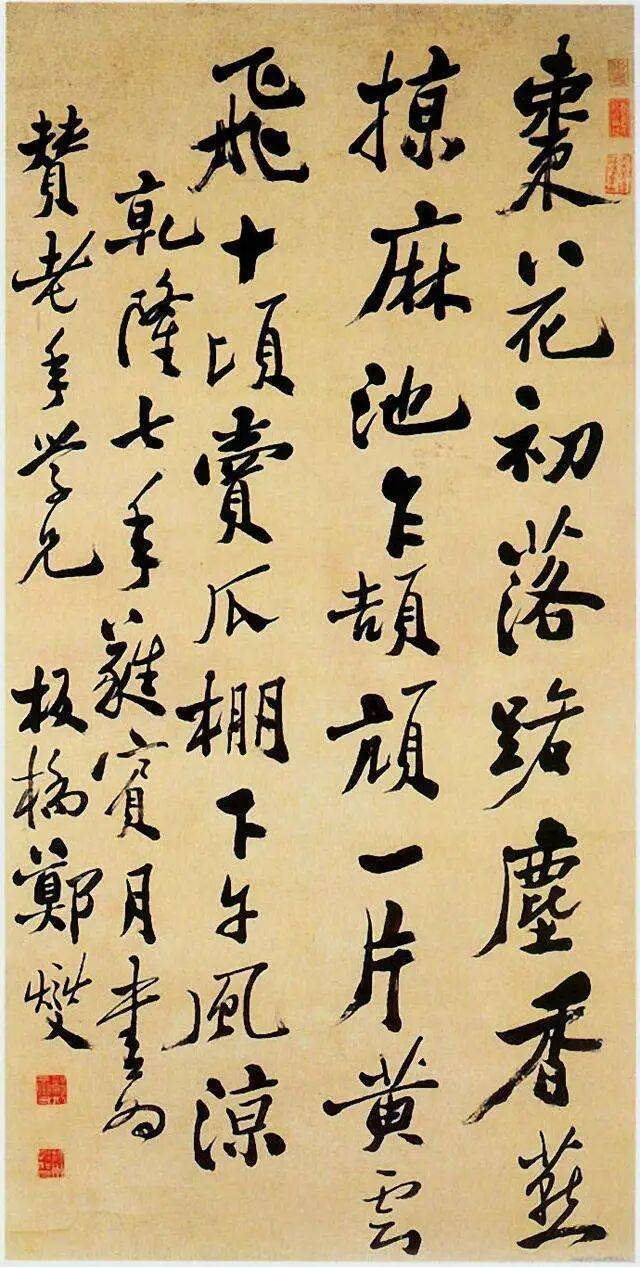 棗花初落路塵香燕
掠麻池乍頡頏一片黄雲
飛十頃賣瓜棚下午風涼
乾隆七年蕤賓月書為
贊老年学兄 板橋鄭燮